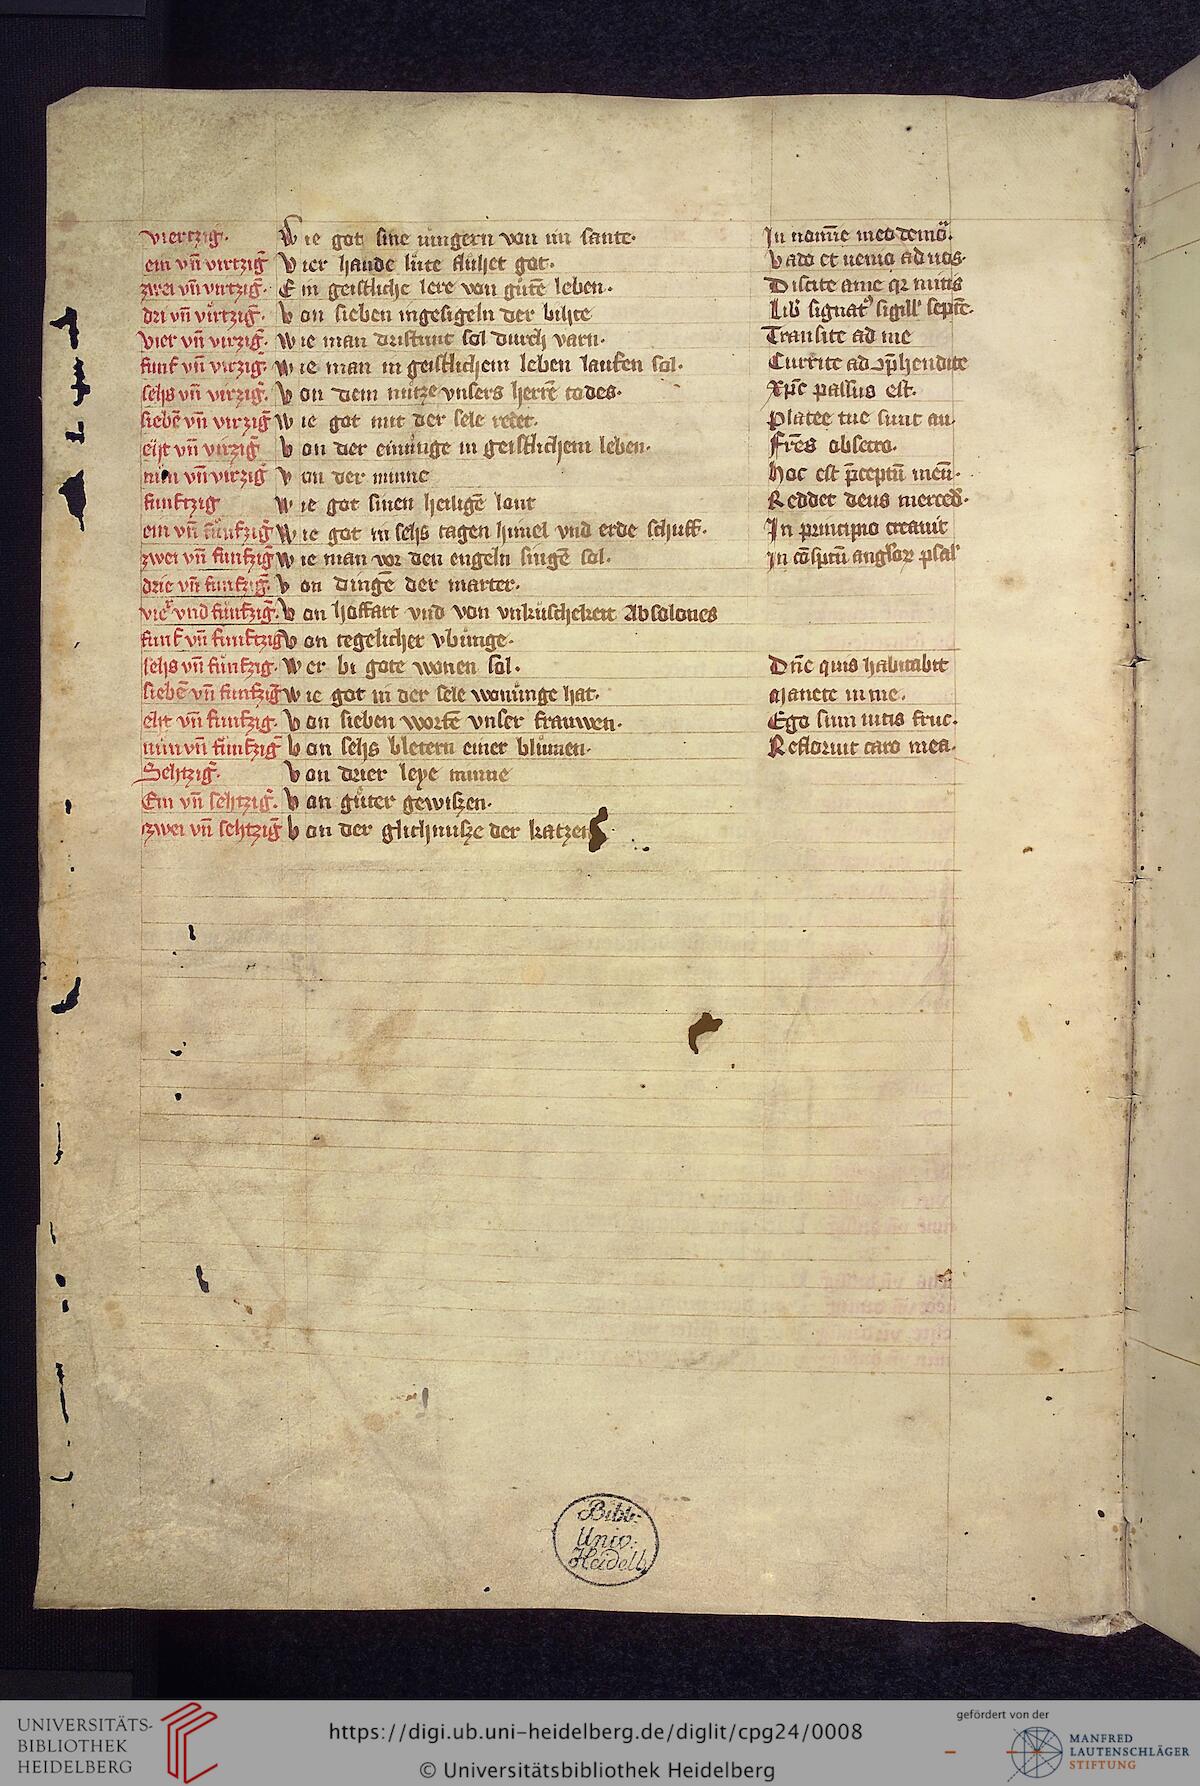 viertzig. Wie got sine iungern von im sante. In nomīe meo demō.
ein vn̄ virtziḡ Vier hande lüte fluhet got. Vado et uenio ad uos.
zwei vn̄ virtziḡ. Ein geistliche lere von gůtē leben. Discite a me qꝛ mitis
dri vn̄ virtziḡ. Von sieben ingesigeln der bihte Lib' signat' sigill' septē.
vier vn̄ virziḡ. Wie man dristunt sol durch varn. Transite ad me
funf vn̄ virziḡ. Wie man in geistlichem leben laufen sol. Currite ad ꝯp̄hendite
sehs vn̄ virziḡ. Von dem nutze vnsers herrē todes. Xpc̄ passus est.
siebē vn̄ virziḡ Wie got mit der sele redet. Platee tue sunt au.
eht vn̄ virziḡ Von der einunge in geistlichem leben. Fr̄es obsecro.
nun vn̄ virziḡ Von der minne Hoc est p̄ceptū meū.
funftzig Wie got sinen heiligē lont Reddet deus merced'.
ein vn̄ funfziḡ Wie got in sehs tagen himel vnd erde schuff. In principio creauit
zwei vn̄ funfziḡ Wie man vor den engeln singē sol. In cōspctū anglorꝝ psal'
drie vn̄ funfziḡ. Von dingē der marter.
vier vnd funfziḡ. Von hoffart vnd von vnkuschekeit Absolones
funf vn̄ funftzig Von tegelicher vbunge.
sehs vn̄ funfzig. Wer bi gote wonen sol. Dn̄e quis habitabit
siebē vn̄ funfziḡ Wie got in der sele wonunge hat. Manete in me.
eht vn̄ funfzig. Von sieben wortē vnser frauwen. Ego sum uitis fruc.
nun vn̄ funfziḡ Von sehs bletern einer blumen. Refloruit caro mea.
Sehtziḡ. Von drier leye minne
Ein vn̄ sehtziḡ. Von gůter gewiszen.
zwei vn̄ sehtziḡ Von der glichnusze der katzen
Bibl:
Univ:
Heidelb.
UNIVERSITÄTS-
BIBLIOTHEK
HEIDELBERG
https://digi.ub.uni-heidelberg.de/diglit/cpg24/0008
© Universitätsbibliothek Heidelberg
gefördert von der
MANFRED
LAUTENSCHLÄGER
STIFTUNG